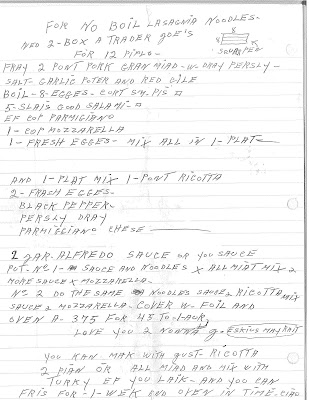 FOR NO BOIL LASAGNIA NOODLES-
NED 2-BOX A TRADER JOE'S
FOR 12 PIPLO-
8
4
SQUARPED
FRAY 2 PONT PORK GRAN MIAD-W-DRAY PERSLY-
SALT- GARLIC POTER AND RED OILE
BOIL-8-EGGES- CORT SM. PIS
5-SLAIS GOOD SALAMI-
EF COP PARMIGIANO
1-COP MOZZARELLA
1-FRESH EGGES- MIX ALL IN 1-PLAT-
AND 1-PLAT MIX 1-PONT RICOTTA
2-FRASH EGGES-
BLACK PEPPER-
PERSLY DRAY
PARMIGGIANO CHESE
2 JAR. ALFREDO SAUCE OR YOU SAUCE
POT-Nº 1- SAUCE AND NOODLES X ALL MIAT MIX 2
MORE SAUCE X MOZZARELLA-
Nº 2 DO THE SAME NOODLES SAUCE 2 RICOTTA MIX
SAUCE 2 MOZZARELLA- COVER W- FOIL AND
OVEN A- 375 FOR 45 TO-1-AUR,
LOVE YOU 2 NONNA G. ESKIUS MAY RAIT
YOU KAN MAK WITH GUST- RICOTTA
2 PIAN OR ALL MIAD AND MIX WITH
TURKY EF YOU LAIK- AND YOU CAN
FRIS FOR-1-WEK AND OVEN IN TIME-CIAO